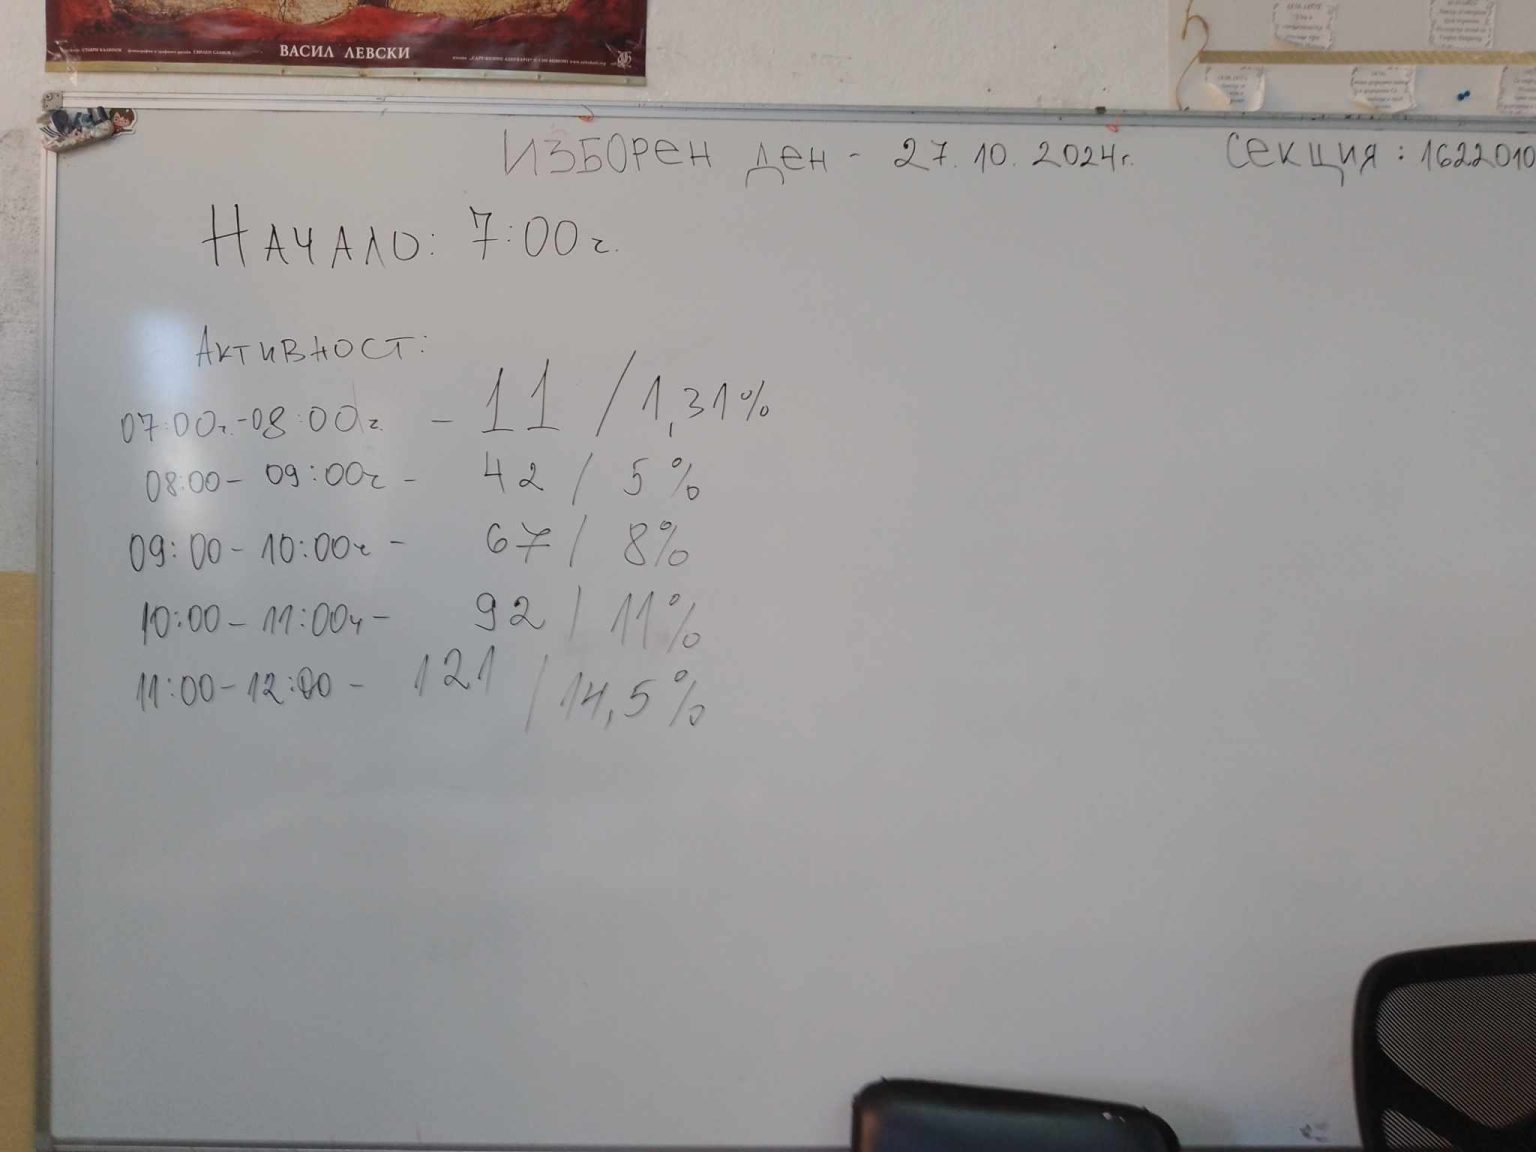 ВАСИЛ ЛЕВСКИ
ИЗБОРЕН ДЕН - 27.10.2024г. СЕКЦИЯ: 1622010
НАЧАЛО: 7:00ч.
АКТИВНОСТ:
07:00ч.-08:00ч. - 11 / 1,31%
08:00- 09:00ч - 42 / 5%
09:00- 10:00ч - 67 / 8%
10:00- 11:00ч - 92 / 11%
11:00-12:00 - 121 / 14,5%